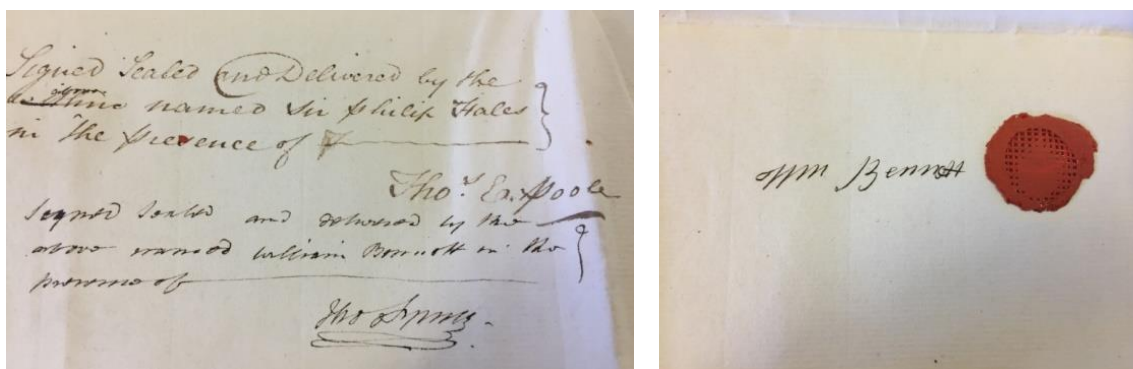 Signed Sealed and Delivered by the
above named Sir Philip Hales
in the presence of
Thos. Er. Poole
Signed Sealed and delivered by the
above named William Bennett in the
presence of
Tho
Wm Bennett